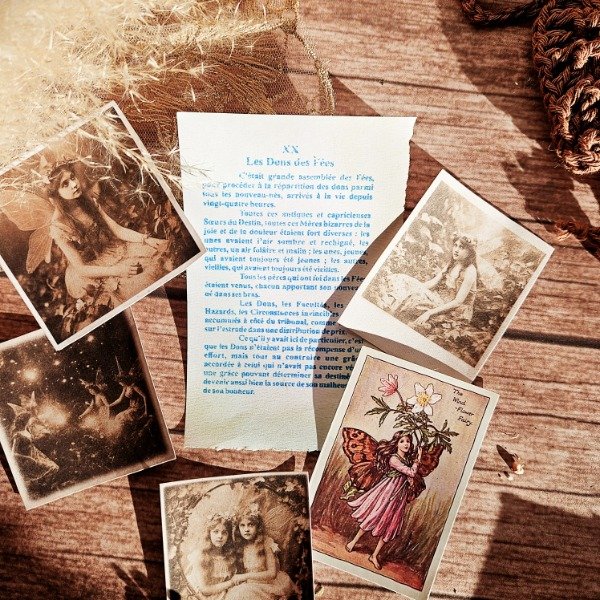 XX
Les Dons des Fées
C'était grande assemblée des Fées,
pour procéder à la répartition des dons parmi
tous les nouveau-nés, arrivés à la vie depuis
vingt-quatre heures.
Toutes ces antiques et capricieuses
Sœurs du Destin, toutes ces Mères bizarres de la
joie et de la douleur étaient fort diverses : les
unes avaient l'air sombre et rechigné, les
autres, un air folâtre et malin ; les unes, jeunes,
qui avaient toujours été jeunes ; les autres,
vieilles, qui avaient toujours été vieilles.
Tous les pères qui ont foi dans les Fées
étaient venus, chacun apportant son nouveau-
né dans ses bras.
Les Dons, les Facultés, les
Hasards, les Circonstances invincibles
accumulés à côté du tribunal, comme
sur l'estrade dans une distribution de prix.
Ce qu'il y avait ici de particulier, c'est
que les Dons n'étaient pas la récompense d'un
effort, mais tout au contraire une grâce
accordée à celui qui n'avait pas encore
une grâce pouvant déterminer sa destinée
devenir aussi bien la source de son malheur
de son bonheur.
The
Wind-Flower
Fairy